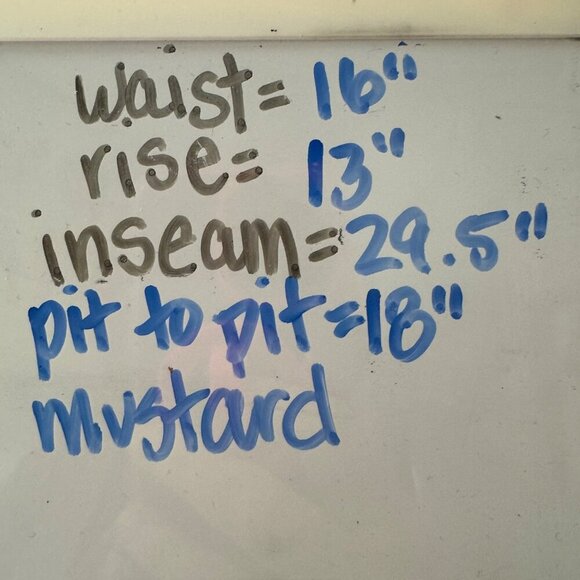 waist= 16"
rise= 13"
inseam=29.5"
pit to pit=18"
mustard